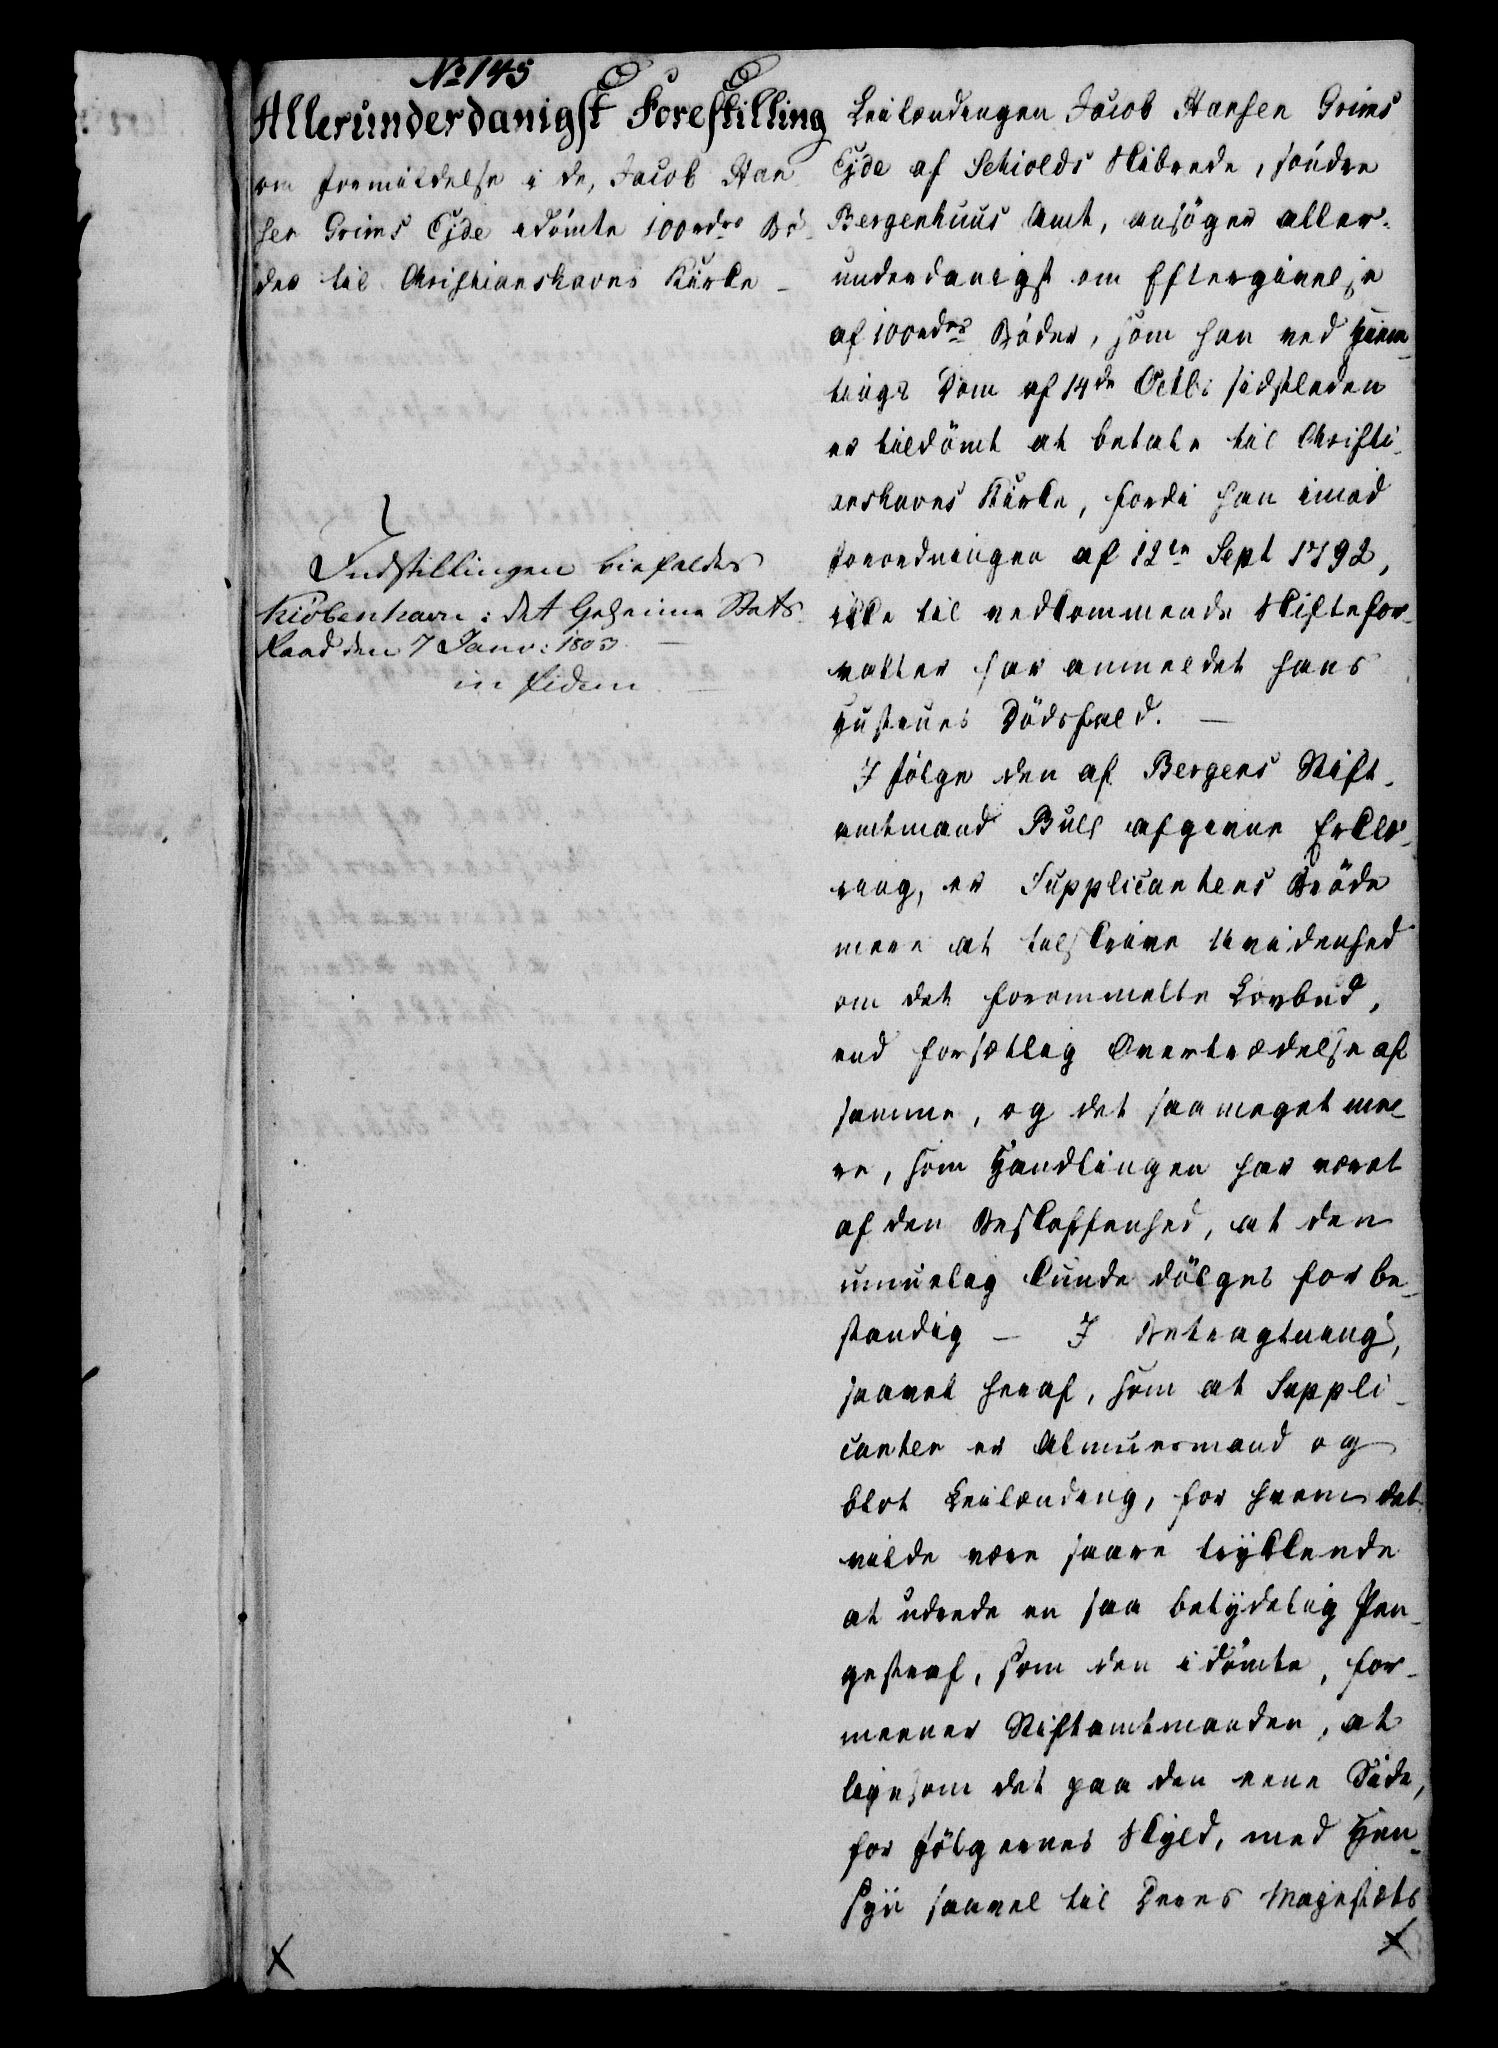 No 145
Allerunderdanigst Forestilling
om Formildelse i de, Jacob Han-
sen Grims Ejde idömte 100 rdrs Bö-
der til Christianshavns Kirke
Indstillingen bifaldes
Kiöbenhavn: det Geheime Stats-
Raad den 7 Janv: 1803
in fidem
Leilændingen Jacob Hansen Grims
Ejde af Schiolds Skibrede, söndre
Bergenhuus Amt, ansöger aller-
underdanigst om Eftergivelse
af 100 rdrs Böder, som han ved Hiem-
tings Dom af 14de Octbr sidstleden
er tildömt at betale til Christi-
anshavns Kirke, fordi han imod
Forordningen af 12te Sept 1792,
ikke til vedkommende Skiftefor-
valter har anmeldet hans
Hustrues Dödsfald. —
I fölge den af Bergens Stift-
amtmand Bull afgivne Erklæ-
ring, er Supplicantens Bröde
mere at tilskrive Uvidenhed
om det forommelte Lovbud,
end forsætlig Overtrædelse af
samme, og det saameget me-
re, som Handlingen har været
af den Beskaffenhed, at den
umuelig kunde dölges for be-
standig — I Betragtning,
saavel heraf, som at Suppli-
canten er Almuesmand og
blot Leilænding, for hvem det
vilde være saare trykkende
at udrede en saa betydelig Pen-
gestraf, som den idömte, for-
meener Stiftamtmanden, at
ligesom det paa den eene Side,
for Fölgernes Skyld, med Hen-
syn saavel til Deres Majestæts